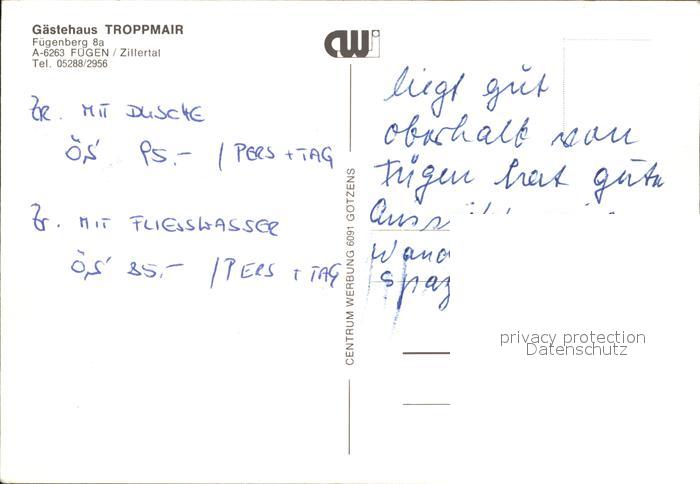 Gästehaus TROPPMAIR
Fügenberg 8a
A-6263 FÜGEN / Zillertal
Tel. 05288/2956
Zr. MIT DUSCHE
ÖS 95.- / PERS + TAG
Zr. MIT FLIESSWASSER
ÖS 85.- / PERS + TAG
CENTRUM WERBUNG 6091 GÖTZENS
CWj
liegt gut
oberhalb von
Fügen hat gute
Auss
Wand
Spaz
privacy protection
Datenschutz